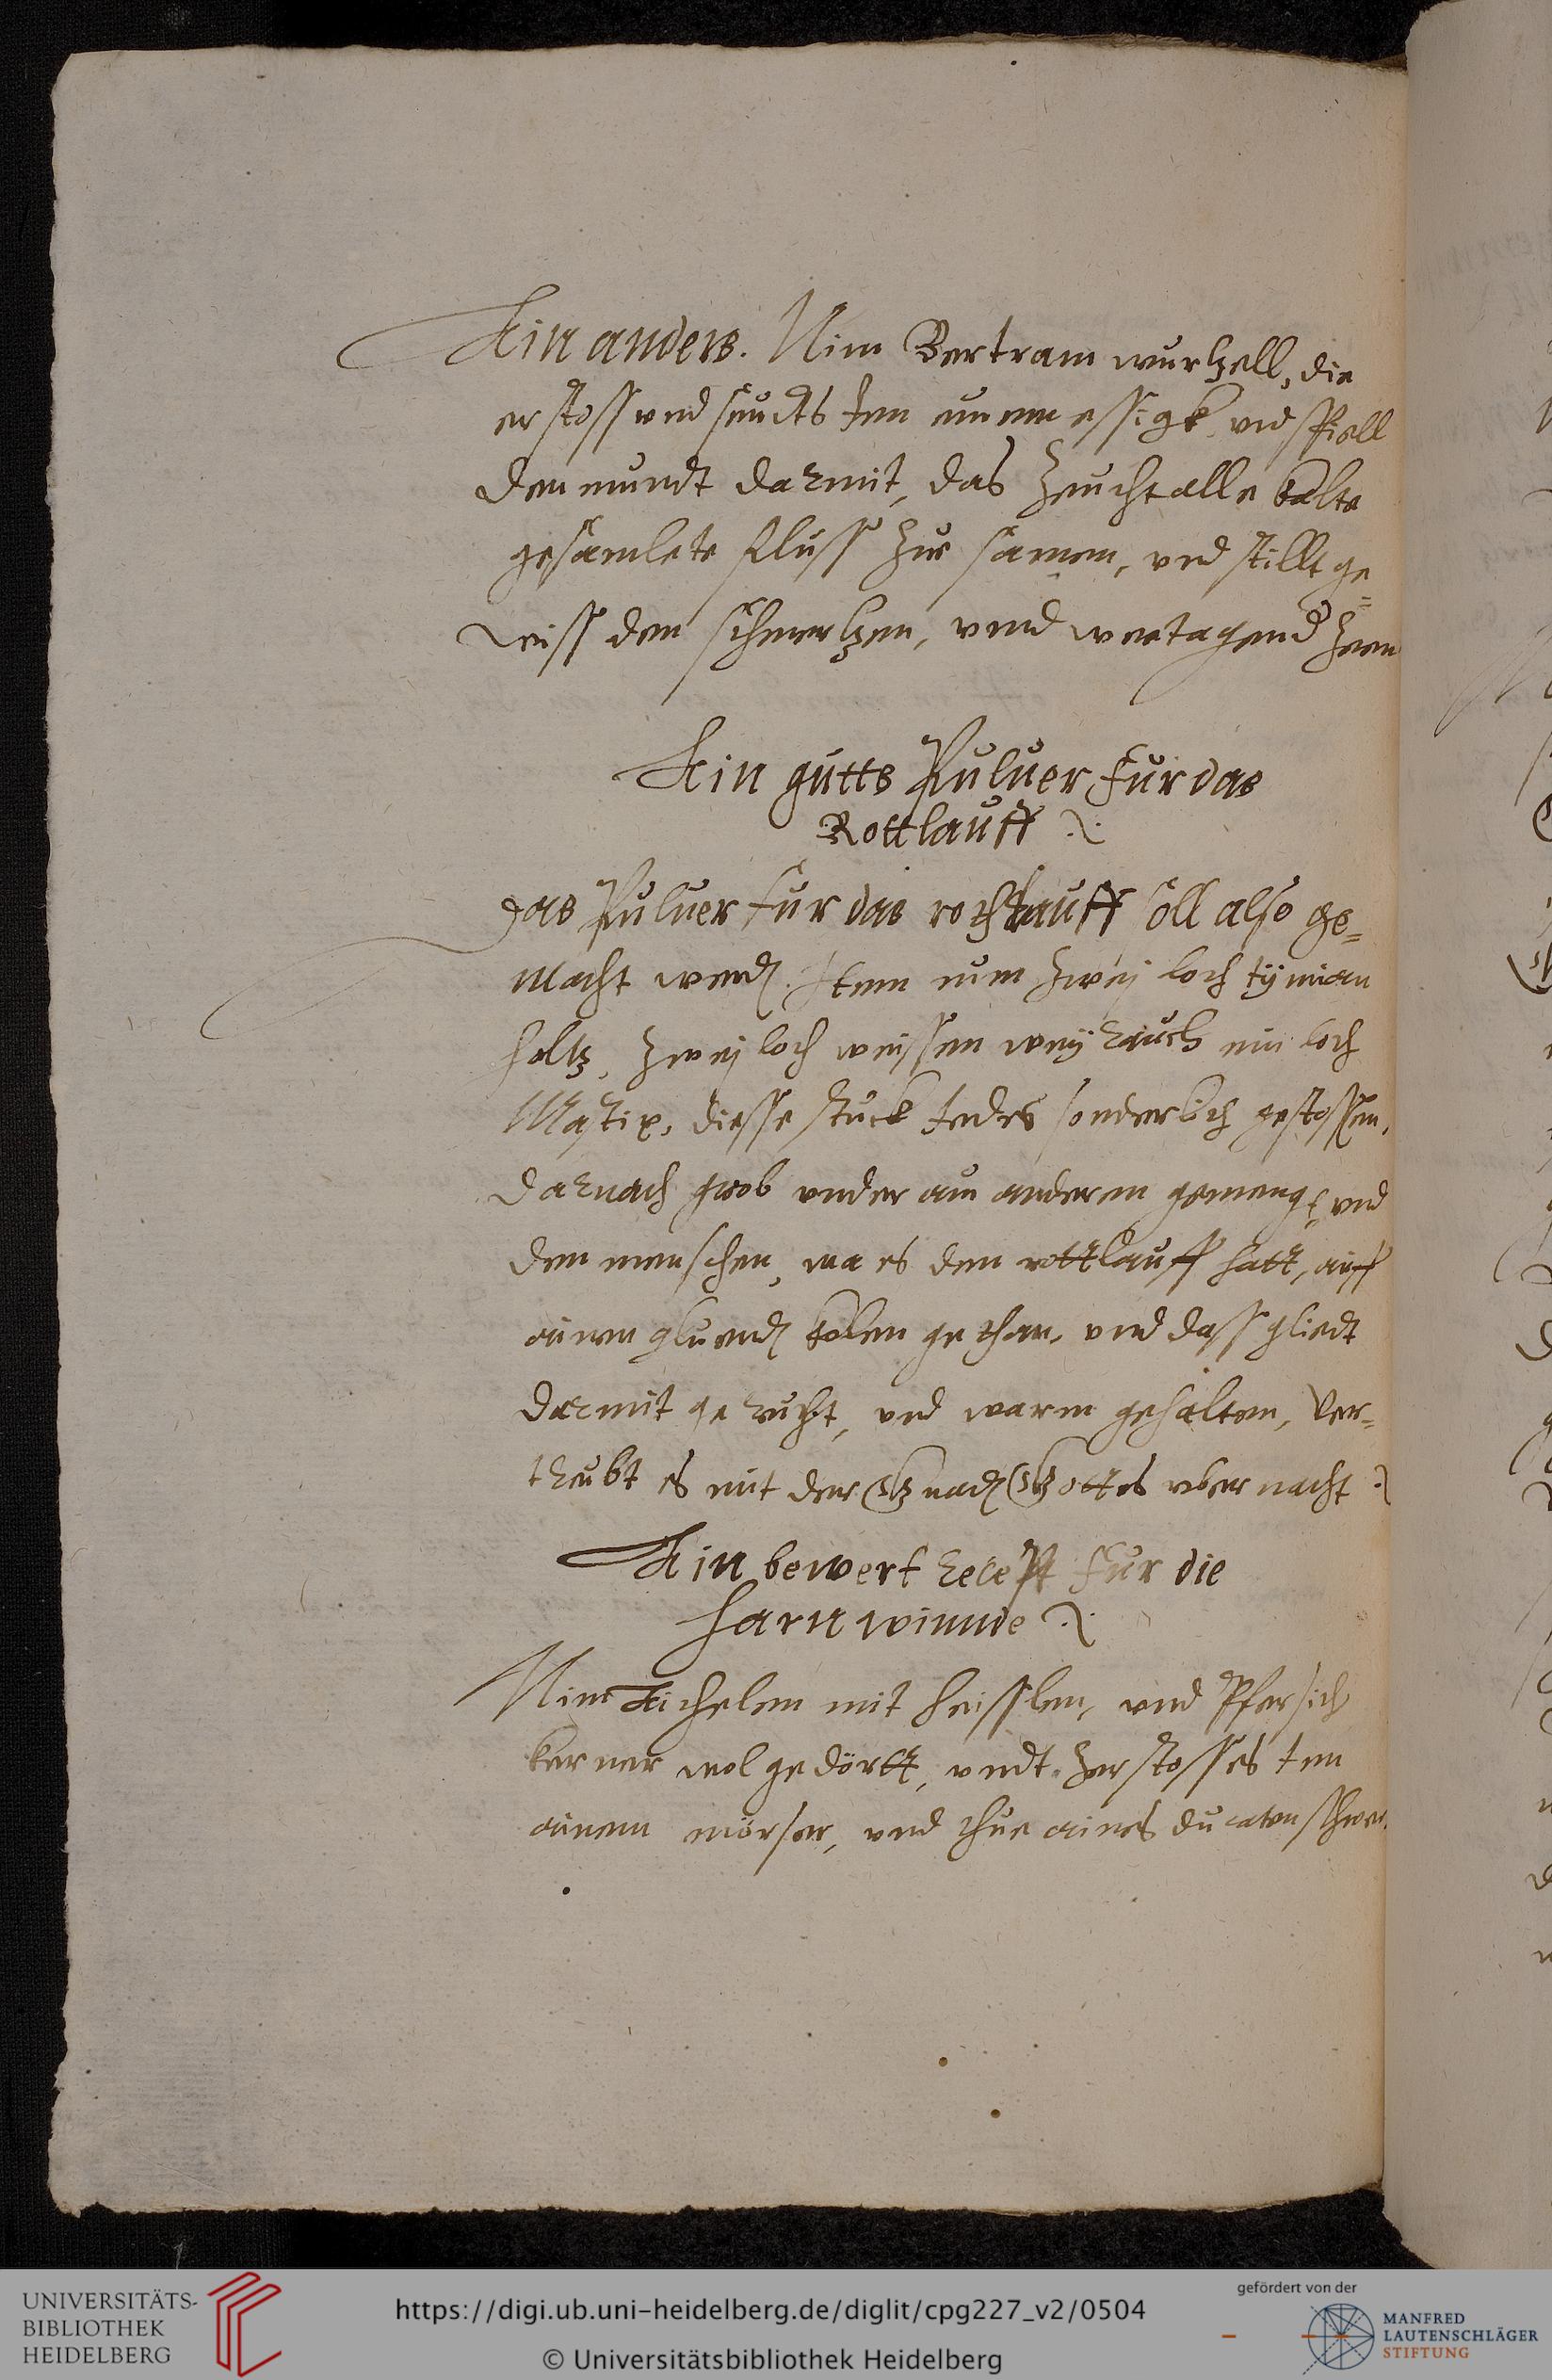 Ein anders. Nim Bertram wurtzell, die
er stoss vnd seudts Inn einem essigk vnd spiell
den mundt darmit, das zeucht alle kalte
gesamlete fluss zur samen, vnd stillt ge=
wiss den schmertzen, vnnd weetagend Zeen
Ein gutts Puluer fur das
Rottlauff
Das Puluer fur das rothlauff soll also ge=
macht werd. Item nim zwej loth tÿmian
holtz, zwej loth weissen weÿrauch ein loth
Mastix, diesse stuck Jedes sonderlich gestossen,
darnach grob vnder ain anderen gemengt, vnd
den menschen, wa es den rottlauff hatt, auff
ainen gluend kolen gethan, vnd dass gliedt
darmit geraucht, vnd warm gehalten, Ver=
treubt es mit der Gnad Gottes vber nacht
Ein bewert recept fur die
harnwinnde
Nim Eichelen mit heisslen, vnd Pfersich
kerner wol gedörtt, vndt zerstosses Inn
ainem mörser, vnd thue aines ducaten schwer
UNIVERSITÄTS-
BIBLIOTHEK
HEIDELBERG
https://digi.ub.uni-heidelberg.de/diglit/cpg227_v2/0504
© Universitätsbibliothek Heidelberg
gefördert von der
MANFRED
LAUTENSCHLÄGER
STIFTUNG